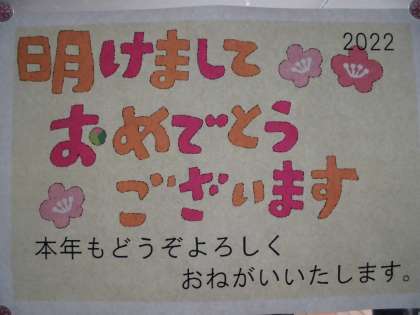 2022
明けまして
おめでとう
ございます
本年もどうぞよろしく
おねがいいたします。